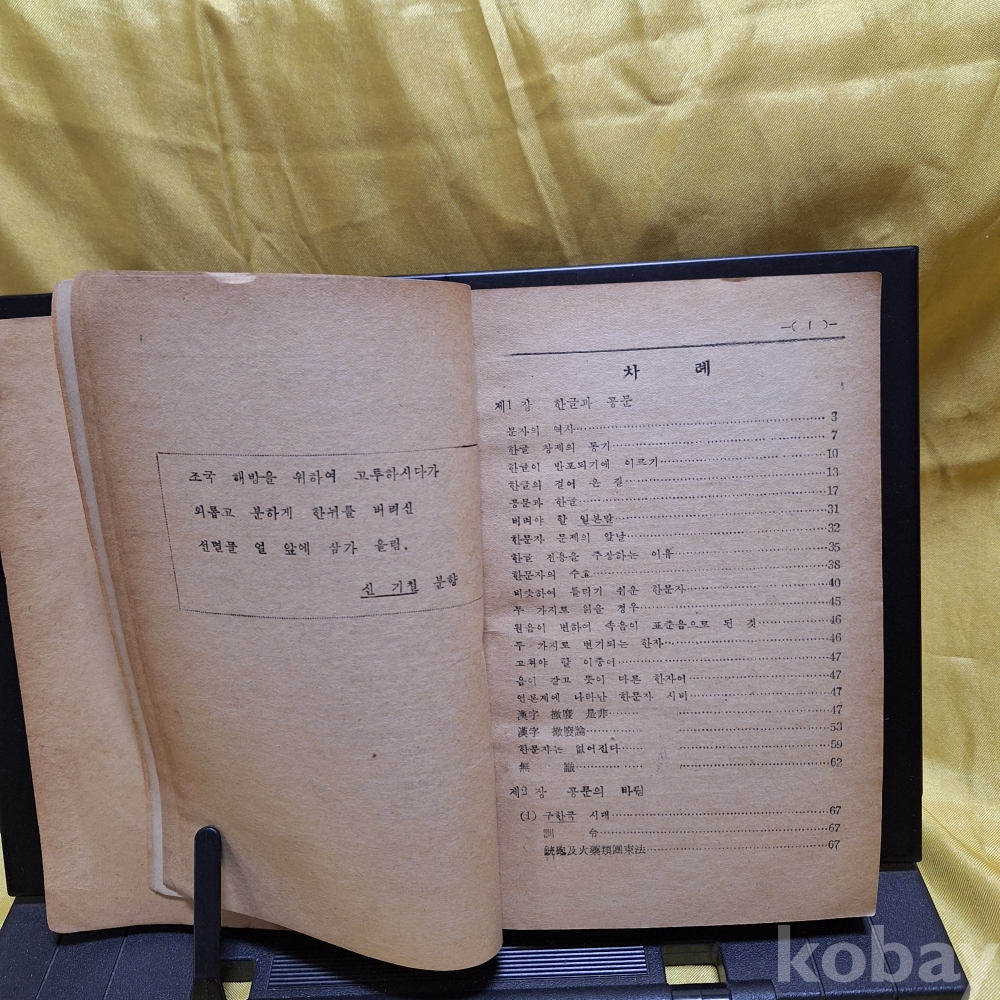 조국 해방을 위하여 고투하시다가
외롭고 분하게 한뉘를 버려신
선열들 얼 앞에 삼가 올림.
신 기철 분향
—( 1 )—
차 례
제1 장 한글과 공문
문자의 역사 3
한글 창제의 동기 7
한글이 반포되기에 이르기 10
한글의 걸어 온 길 13
공문과 한글 17
버려야 할 일본말 31
한문자 문제의 앞날 32
한글 전용을 주장하는 이유 35
한문자의 수효 38
비슷하여 틀리기 쉬운 한문자 40
두 가지로 읽을 경우 45
원음이 변하여 속음이 표준음으로 된 것 46
두 가지로 변기되는 한자 46
고쳐야 할 이중어 47
음이 같고 뜻이 다른 한자어 47
언론계에 나타난 한문자 시비 47
漢字 撤廢 是非 47
漢字 撤廢論 53
한문자는 없어진다 59
無 識 62
제2 장 공문의 바림
(1) 구한국 시대 67
訓 令 67
銃砲及火藥類團束法 67
kobay